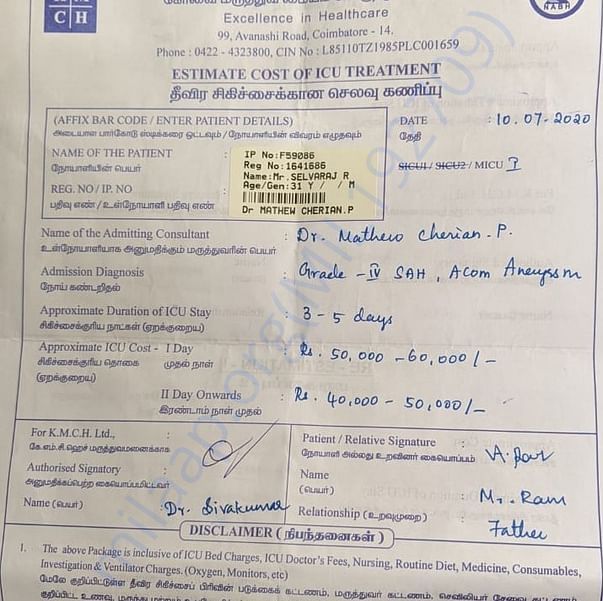 K M
C H
கோவை மருத்துவ
NABH
Excellence in Healthcare
99, Avanashi Road, Coimbatore - 14.
Phone : 0422 - 4323800, CIN No : L85110TZ1985PLC001659
ESTIMATE COST OF ICU TREATMENT
தீவிர சிகிச்சைக்கான செலவு கணிப்பு
(AFFIX BAR CODE / ENTER PATIENT DETAILS)
அடையாள பார்கோடு ஸ்டிக்கரை ஒட்டவும் / நோயாளியின் விவரம் எழுதவும்
DATE : 10.07-2020
தேதி
NAME OF THE PATIENT :
நோயாளியின் பெயர்
REG. NO / IP. NO :
பதிவு எண் / உள்நோயாளி பதிவு எண்
IP No:F59086
Reg No:1641686
Name:Mr.SELVARAJ R
Age/Gen:31 Y / / M
Dr MATHEW CHERIAN.P
SICU1 / SICU2 / MICU I
Name of the Admitting Consultant : Dr. Mathew Cherian . P.
உள்நோயாளியாக அனுமதிக்கும் மருத்துவரின் பெயர்
Admission Diagnosis : Grade - IV SAH , Acom Aneyssm
நோய் கண்டறிதல்
Approximate Duration of ICU Stay : 3 - 5 days
சிகிச்சைக்குரிய நாட்கள் (ஏறக்குறைய)
Approximate ICU Cost - I Day : Rs. 50,000 - 60,000 /-
சிகிச்சைக்குரிய தொகை முதல் நாள்
(ஏறக்குறைய)
II Day Onwards : Rs. 40,000 - 50,000/-
இரண்டாம் நாள் முதல்
For K.M.C.H. Ltd., :
கே.எம்.சி.ஹெச் மருத்துவமனைக்காக
Authorised Signatory :
அனுமதிக்கப்பெற்ற கையொப்பமிட்டவர்
Name (பெயர்) : Dr. Sivakumar
Patient / Relative Signature :
நோயாளி அல்லது உறவினர் கையொப்பம்
Name :
(பெயர்) Mr. Ram
Relationship (உறவுமுறை) : Father
DISCLAIMER (நிபந்தனைகள்)
1. The above Package is inclusive of ICU Bed Charges, ICU Doctor's Fees, Nursing, Routine Diet, Medicine, Consumables,
Investigation & Ventilator Charges. (Oxygen, Monitors, etc)
மேலே குறிப்பிட்டுள்ள தீவிர சிகிச்சைப் பிரிவின் படுக்கைக் கட்டணம், மருத்துவர் கட்டணம், செவிலியர் சேவை கட்டணம்,
milaap.org/(MIL192709)